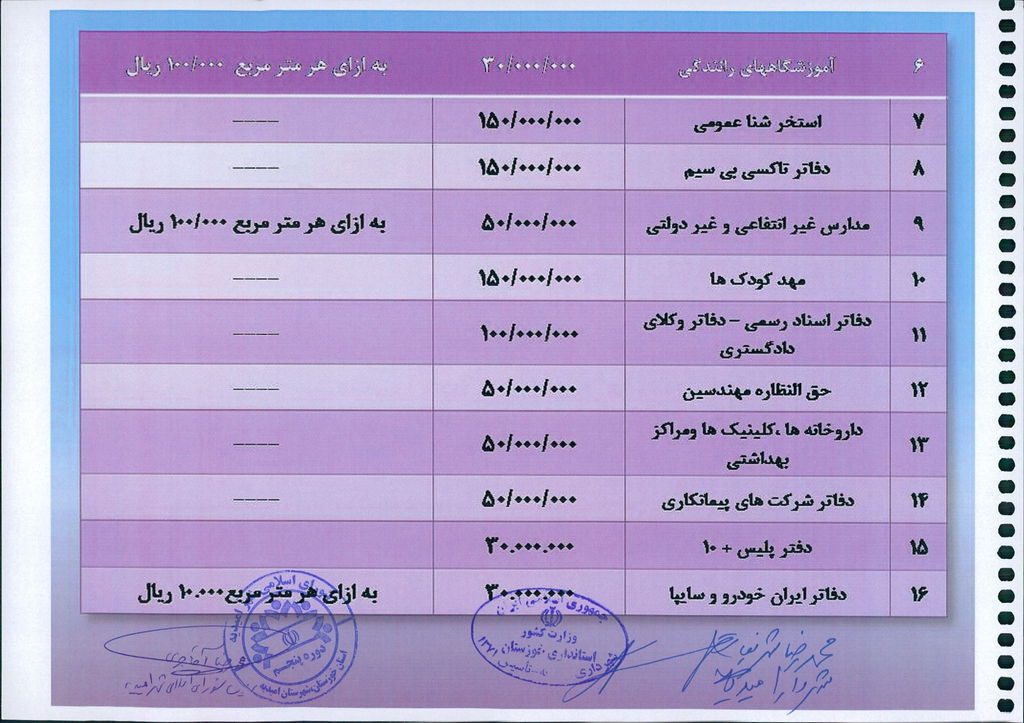 ۶ آموزشگاههای رانندگی ۳۰/۰۰۰/۰۰۰ به ازای هر متر مربع ۱۰۰/۰۰۰ ریال
۷ استخر شنا عمومی ۱۵۰/۰۰۰/۰۰۰ ----
۸ دفاتر تاکسی بی سیم ۱۵۰/۰۰۰/۰۰۰ ----
۹ مدارس غیر انتفاعی و غیر دولتی ۵۰/۰۰۰/۰۰۰ به ازای هر متر مربع ۱۰۰/۰۰۰ ریال
۱۰ مهد کودک ها ۱۵۰/۰۰۰/۰۰۰ ----
۱۱ دفاتر اسناد رسمی – دفاتر وکلای
دادگستری ۱۰۰/۰۰۰/۰۰۰ ----
۱۲ حق النظاره مهندسین ۵۰/۰۰۰/۰۰۰ ----
۱۳ داروخانه ها ،کلینیک ها ومراکز
بهداشتی ۵۰/۰۰۰/۰۰۰ ----
۱۴ دفاتر شرکت های پیمانکاری ۵۰/۰۰۰/۰۰۰ ----
۱۵ دفتر پلیس + ۱۰ ۳۰.۰۰۰.۰۰۰
۱۶ دفاتر ایران خودرو و سایپا ۳۰.۰۰۰.۰۰۰ به ازای هر متر مربع ۱۰.۰۰۰ ریال
جمهوری اسلامی ایران
وزارت کشور
استانداری خوزستان
شهرداری
تأسیس ۱۳۷۱
محمدرضا
شهردار امیدیه
شورای اسلامی شهر امیدیه
دوره پنجم
استان خوزستان، شهرستان امیدیه